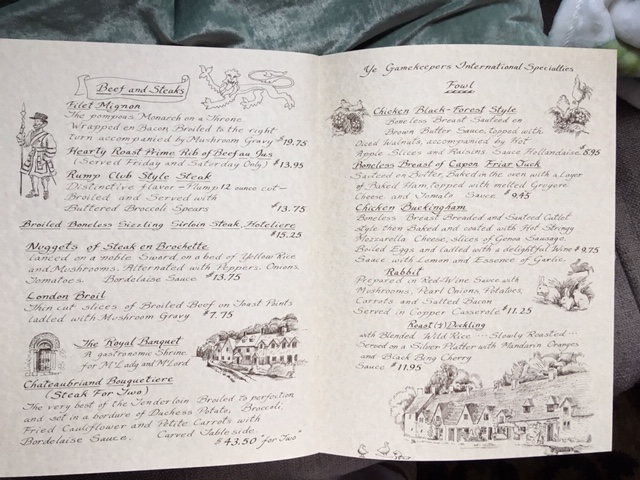 Beef and Steaks
Filet Mignon
The pompous Monarch on a Throne
Wrapped in Bacon Broiled to the right
turn accompanied by Mushroom Gravy $19.75
Hearty Roast Prime Rib of Beef au Jus
(Served Friday and Saturday Only) $13.95
Rump Club Style Steak
Distinctive flavor - Plump 12 ounce cut -
Broiled and Served with
Buttered Broccoli Spears $13.75
Broiled Boneless Sizzling Sirloin Steak, Hoteliere
$15.25
Nuggets of Steak en Brochette
lanced on a noble Sword, on a bed of Yellow Rice
and Mushrooms, Alternated with Peppers, Onions,
Tomatoes. Bordelaise Sauce $13.75
London Broil
Thin cut slices of Broiled Beef on Toast Points
ladled with Mushroom Gravy $7.75
The Royal Banquet
A gastronomic Shrine
for M'Lady and M'Lord
Chateaubriand Bouquetiere
(Steak For Two)
The very best of the Tenderloin Broiled to perfection
and set in a bordure of Duchess Potato, Broccoli,
Fried Cauliflower and Petite Carrots with
Bordelaise Sauce. Carved Tableside.
$43.50 "for Two"
Ye Gamekeepers International Specialties
Fowl
Chicken Black-Forest Style
Boneless Breast Sauteed in
Brown Butter Sauce, topped with
Diced Walnuts, accompanied by Hot
Apple Slices and Raisins. Sauce Hollandaise $8.95
Boneless Breast of Capon Friar Tuck
Sauteed in Butter, Baked in the oven with a Layer
of Baked Ham, topped with melted Gruyere
Cheese and Tomato Sauce $9.45
Chicken Buckingham
Boneless Breast Breaded and Sauteed Cutlet
style then Baked and coated with Hot Stringy
Mozzarella Cheese, slices of Genoa Sausage,
Boiled Eggs and ladled with a delightful Wine $9.75
Sauce with Lemon and Essence of Garlic.
Rabbit
Prepared in Red-Wine Sauce with
Mushrooms, Pearl Onions, Potatoes,
Carrots and Salted Bacon
Served in Copper Casserole $11.25
Roast (½) Duckling
with Blended Wild Rice ... Slowly Roasted ...
Served on a Silver Platter with Mandarin Oranges
and Black Bing Cherry
Sauce $11.95